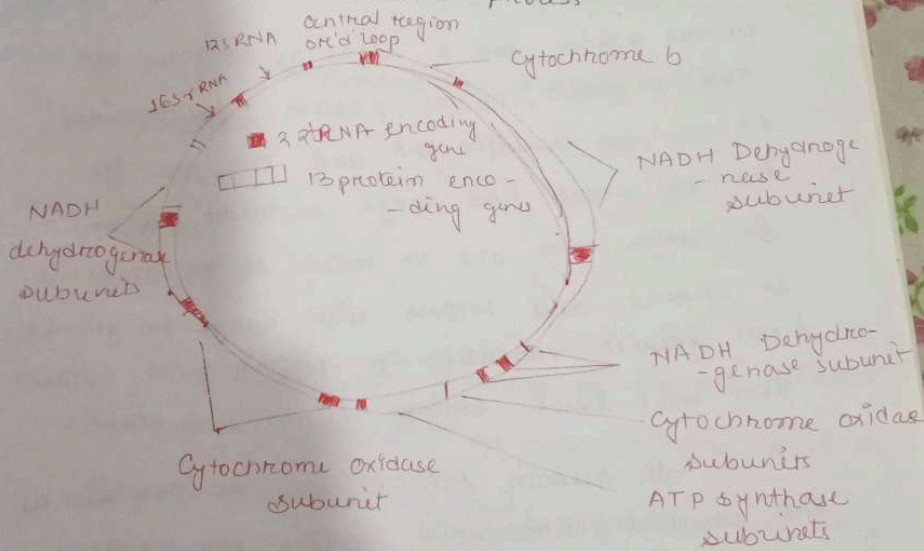 process
central region
or 'd' loop
12SRNA
16SrRNA
Cytochrome b
22tRNA encoding
gene
13 protein enco-
-ding genes
NADH Dehydroge
-nase
subunit
NADH
dehydrogenase
subunits
NADH Dehydro-
-genase subunit
Cytochrome oxidase
subunits
ATP synthase
subunits
Cytochrome oxidase
subunit